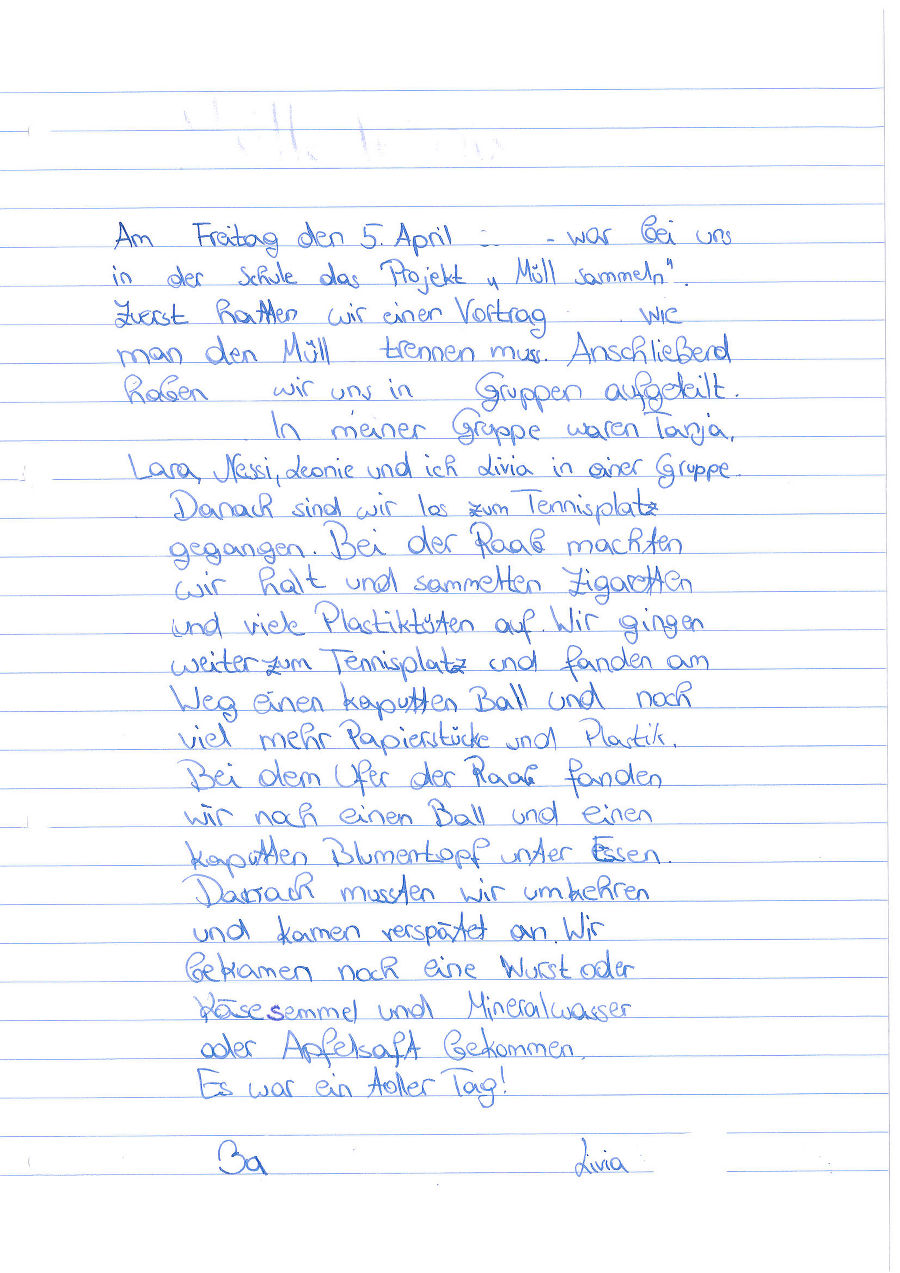 Am Freitag den 5. April - war bei uns
in der Schule das Projekt „Müll sammeln".
Zuerst hatten wir einen Vortrag wie
man den Müll trennen muss. Anschließend
haben wir uns in Gruppen aufgeteilt.
In meiner Gruppe waren Tanja,
Lara, Nessi, Leonie und ich Livia in einer Gruppe.
Danach sind wir los zum Tennisplatz
gegangen. Bei der Raab machten
wir halt und sammelten Zigaretten
und viele Plastiktüten auf. Wir gingen
weiter zum Tennisplatz und fanden am
Weg einen kaputten Ball und noch
viel mehr Papierstücke und Plastik.
Bei dem Ufer der Raab fanden
wir noch einen Ball und einen
kaputten Blumentopf unter Essen.
Danach mussten wir umkehren
und kamen verspätet an. Wir
bekamen noch eine Wurst oder
Käsesemmel und Mineralwasser
oder Apfelsaft bekommen.
Es war ein toller Tag!
3a Livia